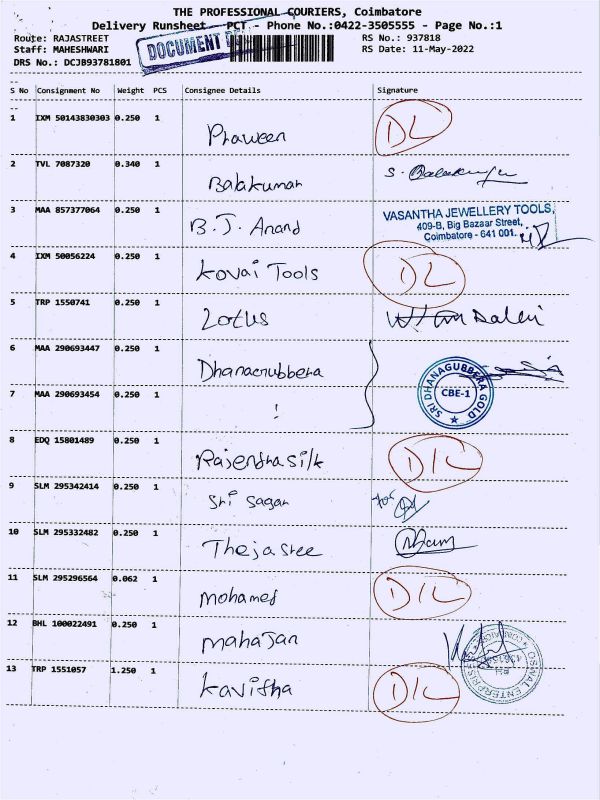 THE PROFESSIONAL COURIERS, Coimbatore
Delivery Runsheet - PCT - Phone No.:0422-3505555 - Page No.:1
Route: RAJASTREET RS No.: 937818
Staff: MAHESHWARI RS Date: 11-May-2022
DRS No.: DCJB93781801
DOCUMENT
S No Consignment No Weight PCS Consignee Details Signature
1 IXM 50143830303 0.250 1 Praween DL
2 TVL 7087320 0.340 1 Balakumar S. Balakumar
3 MAA 857377064 0.250 1 B.J. Anand
VASANTHA JEWELLERY TOOLS,
409-B, Big Bazaar Street,
Coimbatore - 641 001.
4 IXM 50056224 0.250 1 Kovai Tools DL
5 TRP 1550741 0.250 1 Lotus
6 MAA 290693447 0.250 1 Dhanagubbera
SRI DHANAGUBBERA GOLD
CBE-1
7 MAA 290693454 0.250 1 !
8 EDQ 15801489 0.250 1 Rajendhasilk D/L
9 SLM 295342414 0.250 1 Sri Sagar for
10 SLM 295332482 0.250 1 Thejasree
11 SLM 295296564 0.062 1 Mohamed D/L
12 BHL 100022491 0.250 1 Mahajan
OSSNAL ENTERPRISES
13 TRP 1551057 1.250 1 Kavitha D/L